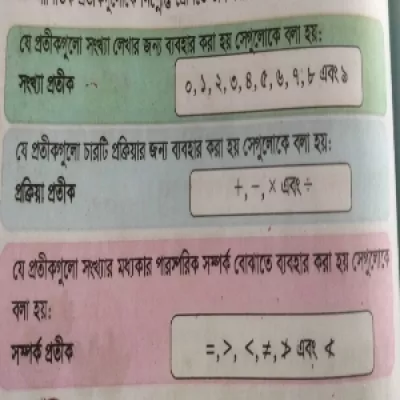 যে প্রতীকগুলো সংখ্যা লেখার জন্য ব্যবহার করা হয় সেগুলোকে বলা হয়:
সংখ্যা প্রতীক ০, ১, ২, ৩, ৪, ৫, ৬, ৭, ৮ এবং ৯
যে প্রতীকগুলো চারটি প্রক্রিয়ার জন্য ব্যবহার করা হয় সেগুলোকে বলা হয়:
প্রক্রিয়া প্রতীক +, −, × এবং ÷
যে প্রতীকগুলো সংখ্যার মধ্যকার পারস্পরিক সম্পর্ক বোঝাতে ব্যবহার করা হয় সেগুলোকে
বলা হয়:
সম্পর্ক প্রতীক =, >, <, ≠, ≯ এবং ≮